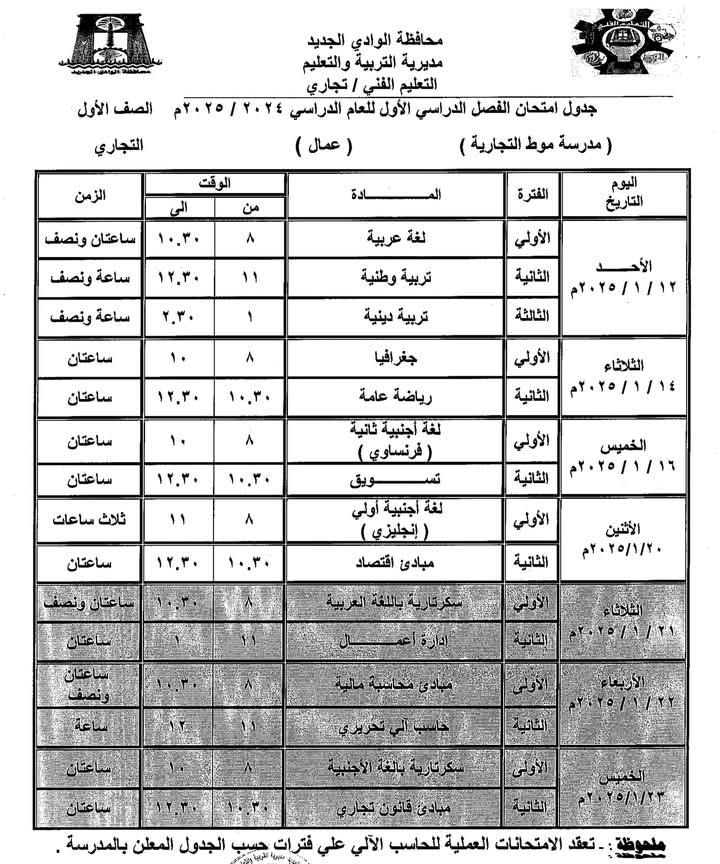 محافظة الوادي الجديد
محافظة الوادي الجديد
مديرية التربية والتعليم
التعليم الفني / تجاري
جدول امتحان الفصل الدراسي الأول للعام الدراسي ٢٠٢٤ / ٢٠٢٥م الصف الأول
( مدرسة موط التجارية ) ( عمال ) التجاري
اليوم التاريخ الفترة المـــــادة الوقت الزمن
من الى
الأحـــد ١٢ / ١ / ٢٠٢٥م الأولي لغة عربية ٨ ١٠.٣٠ ساعتان ونصف
الثانية تربية وطنية ١١ ١٢.٣٠ ساعة ونصف
الثالثة تربية دينية ١ ٢.٣٠ ساعة ونصف
الثلاثاء ١٤ / ١ / ٢٠٢٥م الأولي جغرافيا ٨ ١٠ ساعتان
الثانية رياضة عامة ١٠.٣٠ ١٢.٣٠ ساعتان
الخميس ١٦ / ١ / ٢٠٢٥م الأولي لغة أجنبية ثانية ( فرنساوي ) ٨ ١٠ ساعتان
الثانية تســـويق ١٠.٣٠ ١٢.٣٠ ساعتان
الأثنين ٢٠٢٥/١/٢٠م الأولي لغة أجنبية أولي ( إنجليزي ) ٨ ١١ ثلاث ساعات
الثانية مبادئ اقتصاد ١٠.٣٠ ١٢.٣٠ ساعتان
الثلاثاء ٢١ / ١ / ٢٠٢٥م الأولي سكرتارية باللغة العربية ٨ ١٠.٣٠ ساعتان ونصف
الثانية إدارة أعمـــــال ١١ ١ ساعتان
الأربعاء ٢٢ / ١ / ٢٠٢٥م الأولى مبادئ محاسبة مالية ٨ ١٠.٣٠ ساعتان ونصف
الثانية حاسب آلي تحريري ١١ ١٢ ساعة
الخميس ٢٠٢٥/١/٢٣م الأولى سكرتارية بالغة الأجنبية ٨ ١٠ ساعتان
الثانية مبادئ قانون تجاري ١٠.٣٠ ١٢.٣٠ ساعتان
ملحوظة : - تعقد الامتحانات العملية للحاسب الآلي علي فترات حسب الجدول المعلن بالمدرسة .